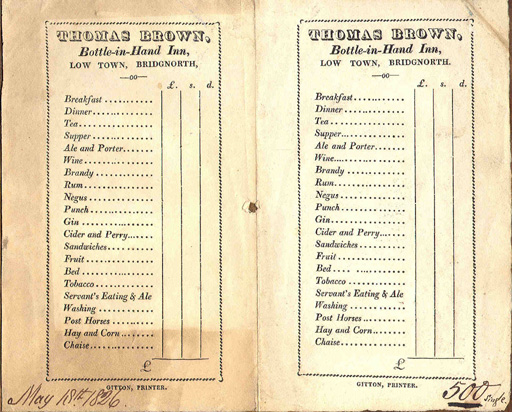 THOMAS BROWN,
Bottle-in-Hand Inn,
LOW TOWN, BRIDGNORTH,
—oo—
£. s. d.
Breakfast ............
Dinner ...............
Tea...................
Supper ...............
Ale and Porter.......
Wine .................
Brandy ...............
Rum..................
Negus ...............
Punch ...............
Gin ..................
Cider and Perry......
Sandwiches..........
Fruit ................
Bed ..................
Tobacco.............
Servant's Eating & Ale
Washing ............
Post Horses .........
Hay and Corn........
Chaise...............
£
GITTON, PRINTER.
May 18th 1826
THOMAS BROWN,
Bottle-in-Hand Inn,
LOW TOWN, BRIDGNORTH.
—oo—
£. s. d.
Breakfast............
Dinner ..............
Tea..................
Supper...............
Ale and Porter.......
Wine.................
Brandy ..............
Rum..................
Negus................
Punch................
Gin..................
Cider and Perry......
Sandwiches..........
Fruit ................
Bed .... ............
Tobacco .............
Servant's Eating & Ale
Washing .............
Post Horses ..........
Hay and Corn........
Chaise...............
£
GITTON, PRINTER.
500 single